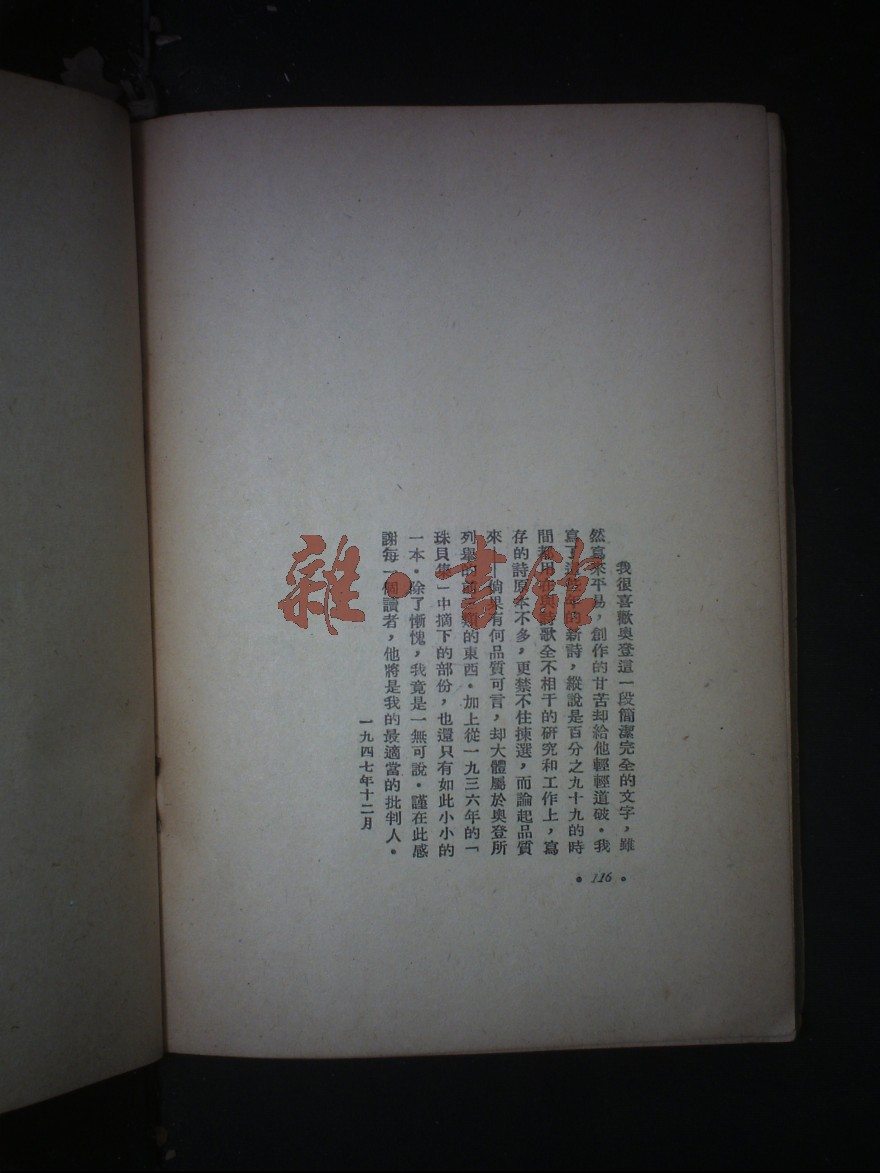 我很喜歡奧登這一段簡潔完全的文字，雖
然寫來平易，創作的甘苦却給他輕輕道破。我
寫了這些年的新詩，縱說是百分之九十九的時
間都用在與詩歌全不相干的研究和工作上，寫
存的詩原本不多，更禁不住揀選，而論起品質
來——倘果有何品質可言，却大體屬於奧登所
列舉的 類的東西。加上從一九三六年的「
珠貝集」中摘下的部份，也還只有如此小小的
一本。除了慚愧，我竟是一無可說。謹在此感
謝每一個讀者，他將是我的最適當的批判人。
一九四七年十二月
• 116 •
雜·書館